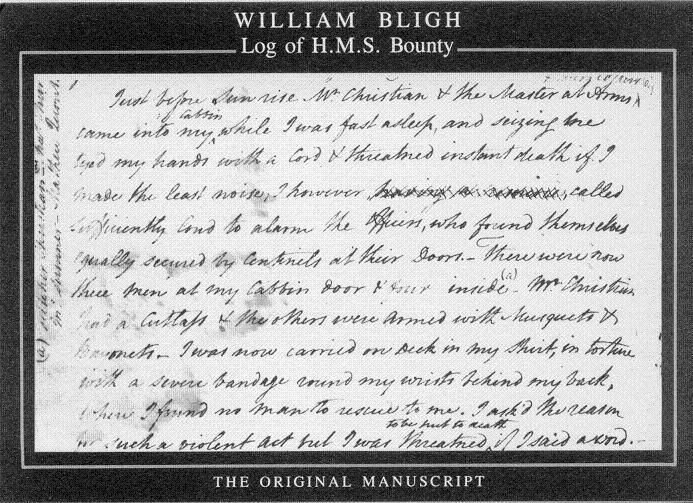 WILLIAM BLIGH
Log of H.M.S. Bounty
Just before Sun rise Mr. Christian & the Master at Arms
of Cabbin
came into my while I was fast asleep, and seizing me
tyed my hands with a Cord & threatned instant death if I
made the least noise, I however called
sufficiently loud to alarm the Officers, who found themselves
equally secured by Centinels at their Doors.— There were now
three men at my Cabbin door & four inside (a) Mr. Christian
had a Cutlass & the others were Armed with Musquets &
Bayonets— I was now carried on Deck in my Shirt, in torture
with a severe bandage round my wrists behind my back,
where I found no man to rescue to me. I ask'd the reason
to be put to death
for such a violent act but I was threatned if I said a word.—
(a) Christian
THE ORIGINAL MANUSCRIPT